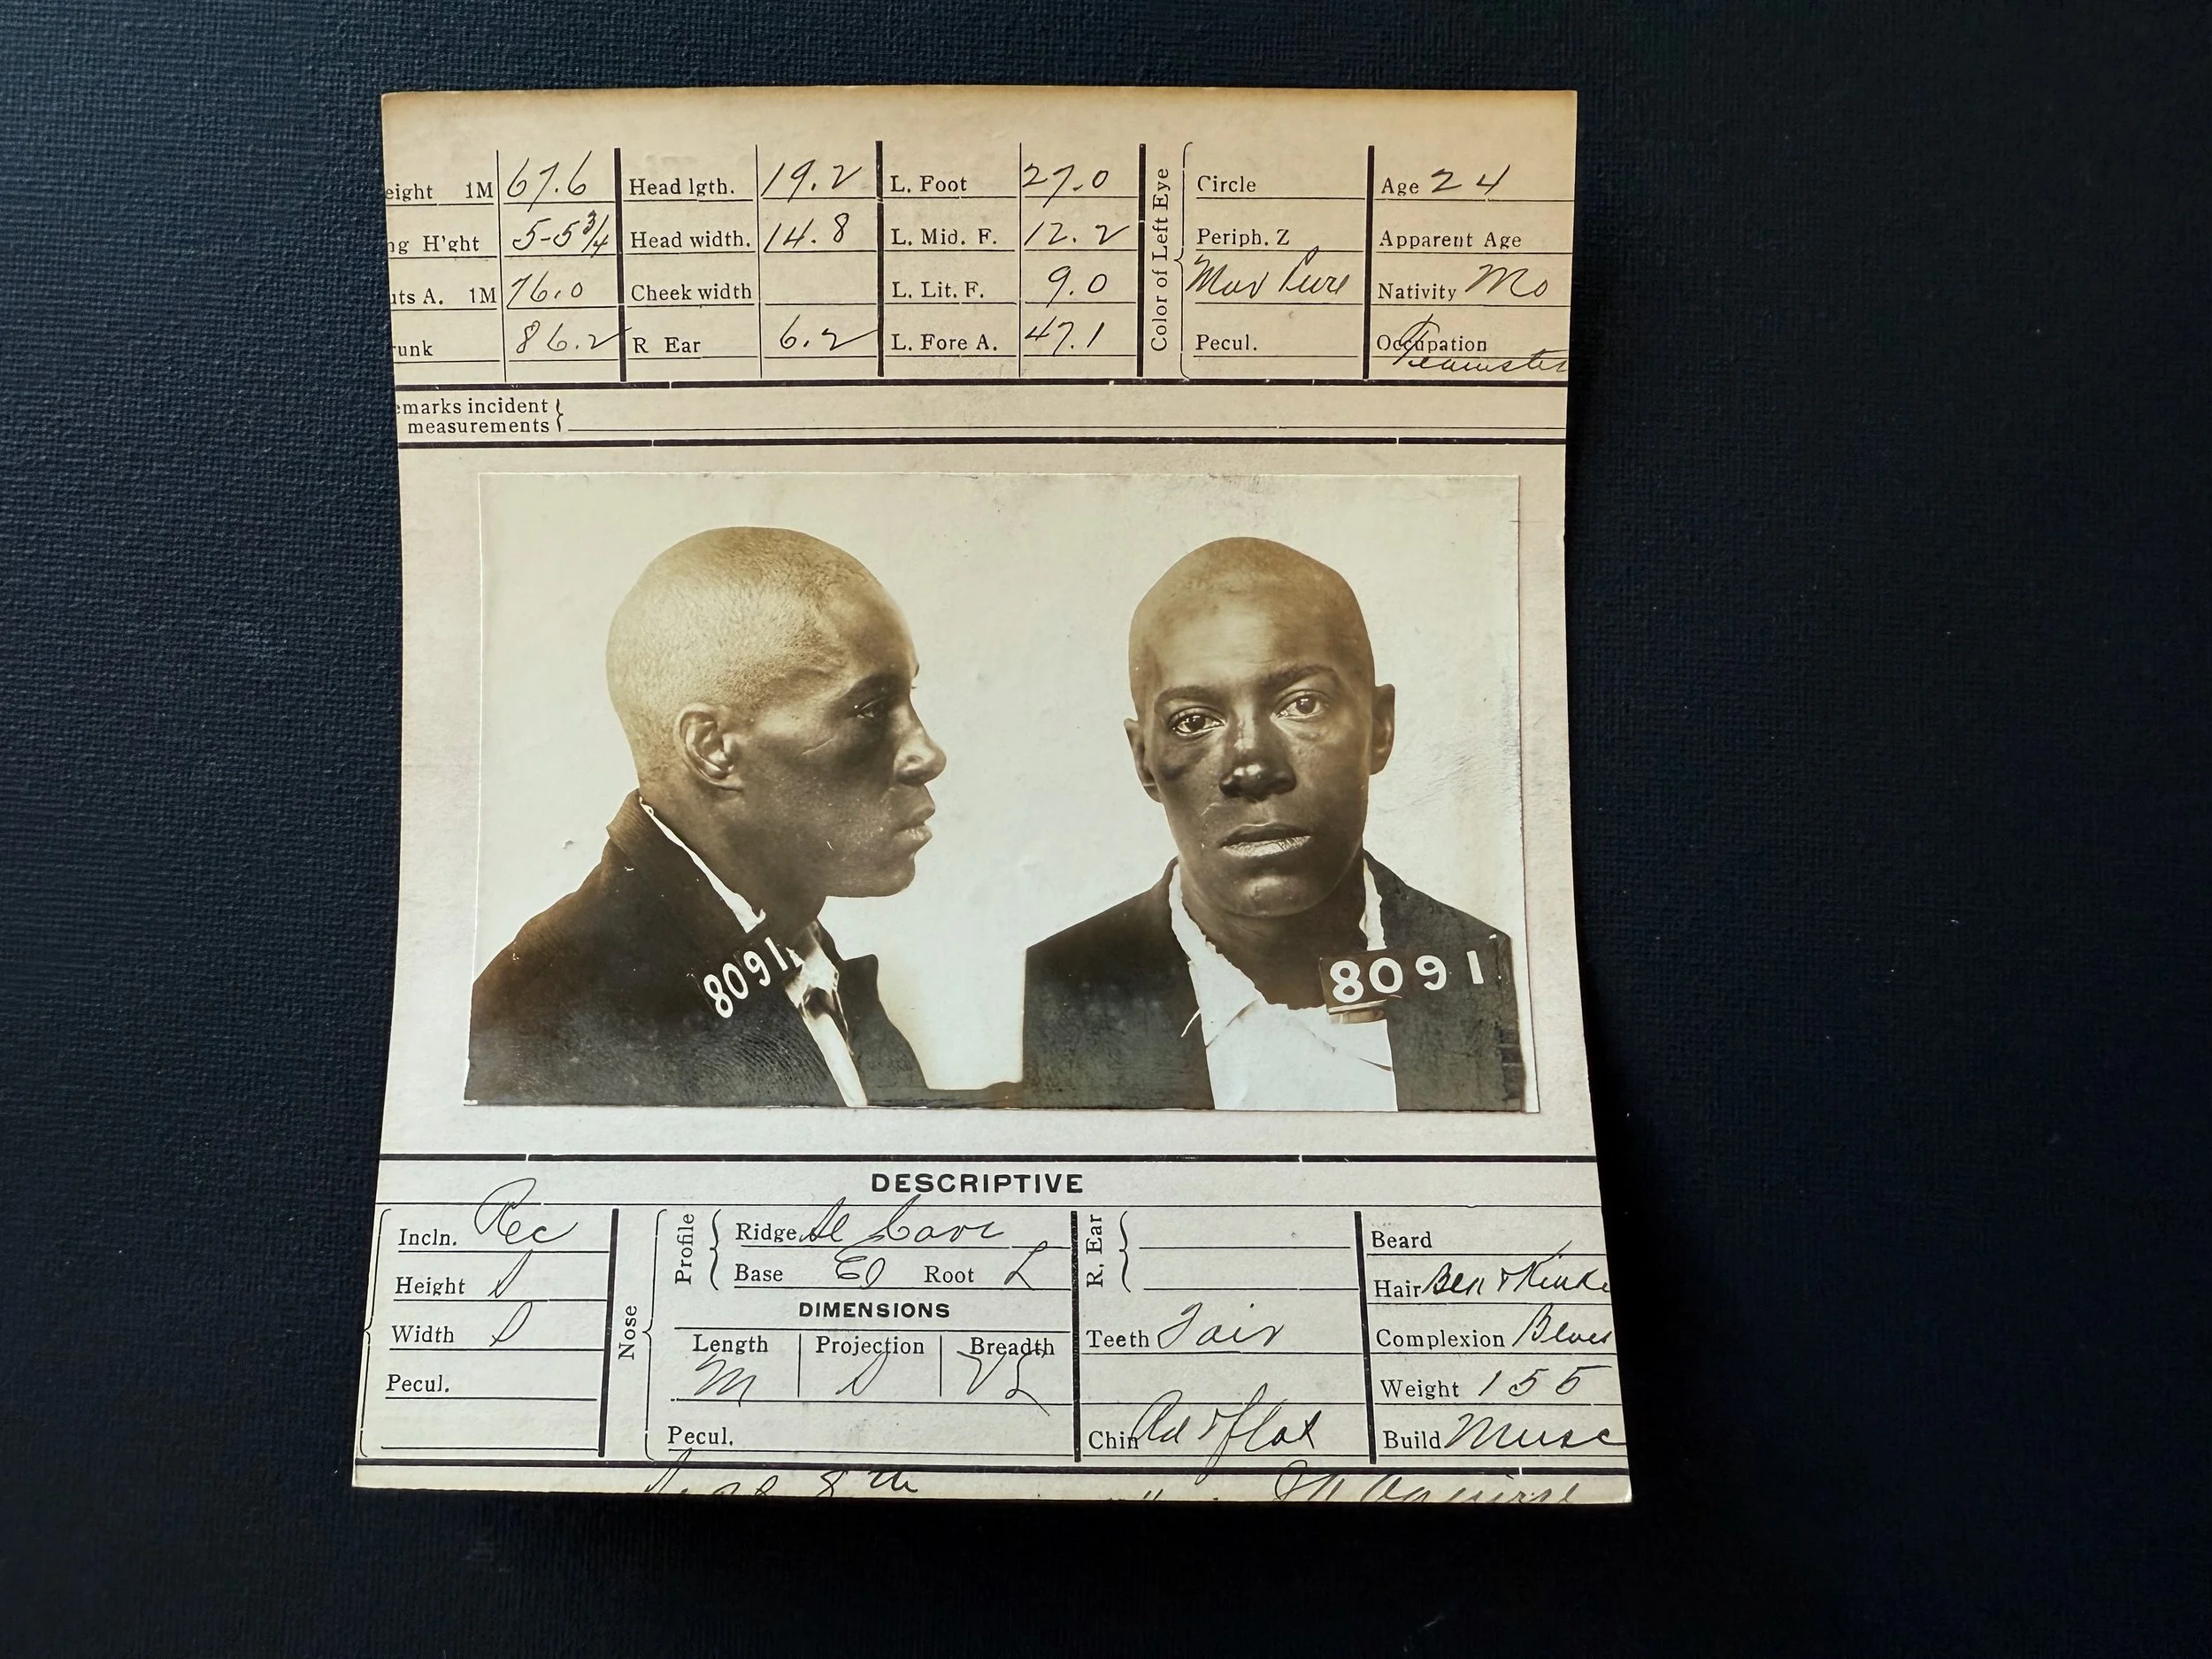 eight 1M 67.6 Head lgth. 19.2 L. Foot 27.0 Circle Age 24
ng H'ght 5-5 3/4 Head width. 14.8 L. Mid. F. 12.2 Periph. Z Apparent Age
uts A. 1M 76.0 Cheek width L. Lit. F. 9.0 Mar Pure Nativity Mo
runk 86.2 R Ear 6.2 L. Fore A. 47.1 Pecul. Occupation Teamster
Color of Left Eye
emarks incident
measurements
8091
8091
DESCRIPTIVE
Incln. Rec
Height
Width
Pecul.
Nose
Profile
Ridge
Base El Root L
DIMENSIONS
Length Projection Breadth
M VL
Pecul.
R. Ear
Teeth Fair
Chin flat
Beard
Hair
Complexion
Weight 155
Build Musc
8th